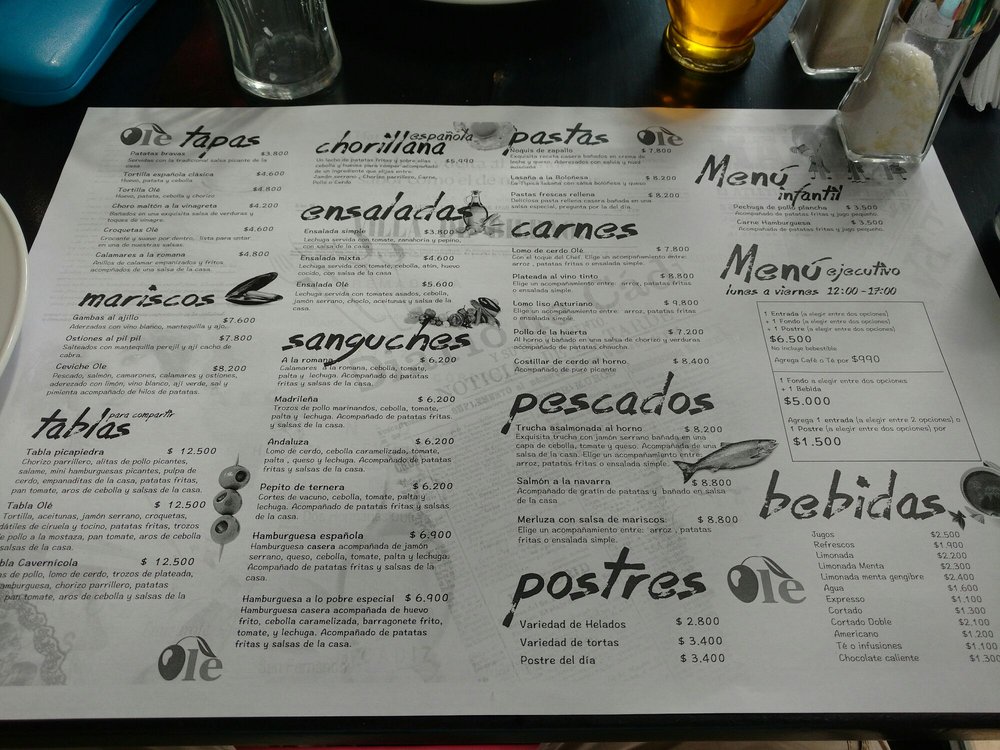 Olè tapas
Patatas bravas $3.800
Servidas con la tradicional salsa picante de la
casa.
Tortilla española clásica $4.600
Huevo, patata y cebolla
Tortilla Olé $4.800
Huevo, patata, cebolla y chorizo
Choro maltón a la vinagreta $4.200
Bañados en una exquisita salsa de verduras y
toques de vinagre.
Croquetas Olé $4.600
Crocante y suave por dentro, lista para untar
en una de nuestras salsas.
Calamares a la romana $4.800
Anillos de calamar empanizados y fritos
acompañados de una salsa de la casa
mariscos
Gambas al ajillo $7.600
Aderezadas con vino blanco, mantequilla y ajo.
Ostiones al pil pil $7.800
Salteados con mantequilla perejil y ají cacho de
cabra.
Ceviche Olé $8.200
Pescado, salmón, camarones, calamares y ostiones,
aderezado con limón, vino blanco, ají verde, sal y
pimienta acompañado de hilos de patatas.
tablas para compartir
Tabla picapiedra $ 12.500
Chorizo parrillero, alitas de pollo picantes,
salame, mini hamburguesas picantes, pulpa de
cerdo, empanaditas de la casa, patatas fritas,
pan tomate, aros de cebolla y salsas de la casa.
Tabla Olé $ 12.500
Tortilla, aceitunas, jamón serrano, croquetas,
dátiles de ciruela y tocino, patatas fritas, trozos
de pollo a la mostaza, pan tomate, aros de cebolla
salsas de la casa.
bla Cavernícola $ 12.500
as de pollo, lomo de cerdo, trozos de plateada,
amburguesa, chorizo parrillero, patatas
pan tomate, aros de cebolla y salsas de la
Olè
chorillana española
Un lecho de patatas fritas y sobre ellas $5.990
cebolla y huevos para romper acompañado
de un ingrediente que elijas entre:
Jamón serrano, Chorizo parrillero, Carne,
Pollo o Cerdo
ensaladas
Ensalada simple $3.800
Lechuga servida con tomate, zanahoria y pepino,
con salsa de la casa
Ensalada mixta $4.600
Lechuga servida con tomate, cebolla, atún, huevo
cocido, con salsa de la casa
Ensalada Olé $5.600
Lechuga servida con tomates asados, cebolla,
jamón serrano, choclo, aceitunas y salsa de la
casa.
sanguches
A la romana $6.200
Calamares a la romana, cebolla, tomate,
palta y lechuga. Acompañado de patatas
fritas y salsas de la casa.
Madrileña $ 6.200
Trozos de pollo marinandos, cebolla, tomate,
palta y lechuga. Acompañado de patatas
fritas y salsas de la casa.
Andaluza $ 6.200
Lomo de cerdo, cebolla caramelizada, tomate,
palta , queso y lechuga. Acompañado de patatas
fritas y salsas de la casa.
Pepito de ternera $ 6.200
Cortes de vacuno, cebolla, tomate, palta y
lechuga. Acompañado de patatas fritas y
salsas de la casa.
Hamburguesa española $ 6.900
Hamburguesa casera acompañada de jamón
serrano, queso, cebolla, tomate, palta y lechuga.
Acompañado de patatas fritas y salsas de la
casa.
Hamburguesa a lo pobre especial $ 6.900
Hamburguesa casera acompañada de huevo
frito, cebolla caramelizada, barragonete frito,
tomate, y lechuga. Acompañado de patatas
fritas y salsas de la casa.
pastas Olè
Ñoquis de zapallo $ 7.800
Exquisita receta casera bañados en crema de
leche y queso. Aderezados con salvia y nuez
Lasaña a la Boloñesa $ 8.200
La típica lasaña con salsa boloñesa y queso
Pastas frescas rellena $ 8.200
Deliciosa pasta rellena casera bañada en una
salsa especial, pregunta por la del día.
carnes
Lomo de cerdo Olé $ 7.800
Con el toque del Chef. Elige un acompañamiento entre:
arroz , patatas fritas o ensalada simple.
Plateada al vino tinto $ 8.800
Elige un acompañamiento entre: arroz, patatas fritas
o ensalada simple.
Lomo liso Asturiano $ 9.800
Elige un acompañamiento entre: arroz, patatas fritas o
ensalada simple.
Pollo de la huerta $ 7.200
Al horno y bañado en una salsa de chorizo y verduras
acompañado de patatas chaucha.
Costillar de cerdo al horno. $ 8.400
Acompañado de puré picante
pescados
Trucha asalmonada al horno $ 8.200
Exquisita trucha con jamón serrano bañada en una
capa de cebolla, tomate y queso. Acompañada de una
salsa de la casa. Elige un acompañamiento entre:
arroz, patatas fritas o ensalada simple.
Salmón a la navarra $ 8.800
Acompañado de gratín de patatas y bañado en salsa
de la casa.
Merluza con salsa de mariscos. $ 8.800
Elige un acompañamiento entre: arroz , patatas
fritas o ensalada simple.
postres Olè
Variedad de Helados $ 2.800
Variedad de tortas $ 3.400
Postre del día $ 3.400
Menú
infantil
Pechuga de pollo plancha $ 3.500
Acompañado de patatas fritas y jugo pequeño.
Carne Hamburguesa $ 3.500
Acompañado de patatas fritas y jugo pequeño.
Menú ejecutivo
lunes a viernes 12:00 -17:00
1 Entrada (a elegir entre dos opciones)
+ 1 Fondo (a elegir entre dos opciones)
+ 1 Postre (a elegir entre dos opciones)
$6.500
No incluye bebestible
Agrega Café o Té por $990
1 Fondo a elegir entre dos opciones
+ 1 Bebida
$5.000
Agrega 1 entrada (a elegir entre 2 opciones) o
1 Postre (a elegir entre dos opciones) por
$1.500
bebidas
Jugos $2.500
Refrescos $1.900
Limonada $2.200
Limonada Menta $2.300
Limonada menta gengibre $2.400
Agua $1.600
Expresso $1.100
Cortado $1.300
Cortado Doble $2.100
Americano $1.200
Té o infusiones $1.100
Chocolate caliente $1.300